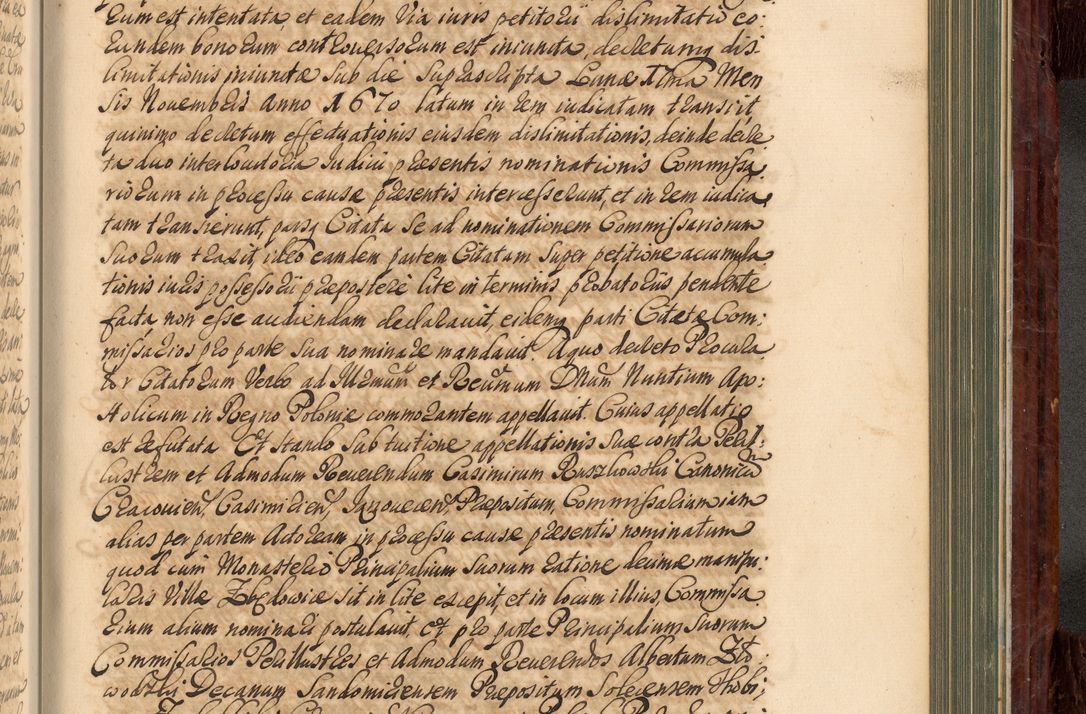 rum est intentata, et eadem via iuris petitorii dislimitatio eo:
rundem bonorum controversorum est iniuncta, decretumq dis
limitationis iniunctæ sub die suprascripta Lunæ 17ma Men
sis Novembris Anno 1670 latum in rem iudicatam transivit
quinimo decretum effectuationis eiusdem dislimitationis, deinde decre
ta duo interlocutoria Iudicii præsentis nominationis Commissa
riorum in processu causæ præsentis intercesserunt, et in rem iudica
tam transierunt, parsq Citata se ad nominationem Commissariorum
suorum traxit ideo eandem partem Citatam super petitione accumula
tionis iuris possessorii præpostere lite in terminis probatoriis pendente
facta non esse audiendam declaravit, eidemq parti Citatæ Com:
missarios pro parte sua nominare mandavit. A quo decreto Procura
tor Citatorum verbo ad Illmum et Reumum Dnum Nuntium Apo:
stolicum in Regno Poloniæ commorantem appellavit. Cuius appellatio
est refutata Et stando sub tuitione appellationis suæ contra Peril:
lustrem et Admodum Reverendum Casimirum Ruszkowski Canonicum
Cracovien, Casimirien, Præpositum, Commissarium iam
alias per partem Actoream in processu causæ præsentis nominatum
quod cum Monasterio Principalium suorum ratione decimæ manipu:
laris Villæ sit in lite excepit, et in locum illius, Commissa
rium alium nominari postulavit. Et pro parte Principalium suorum
Commissarios Perillustres et Admodum Reverendos Albertum
Decanum Sandomiriensem Præpositum Solecensem